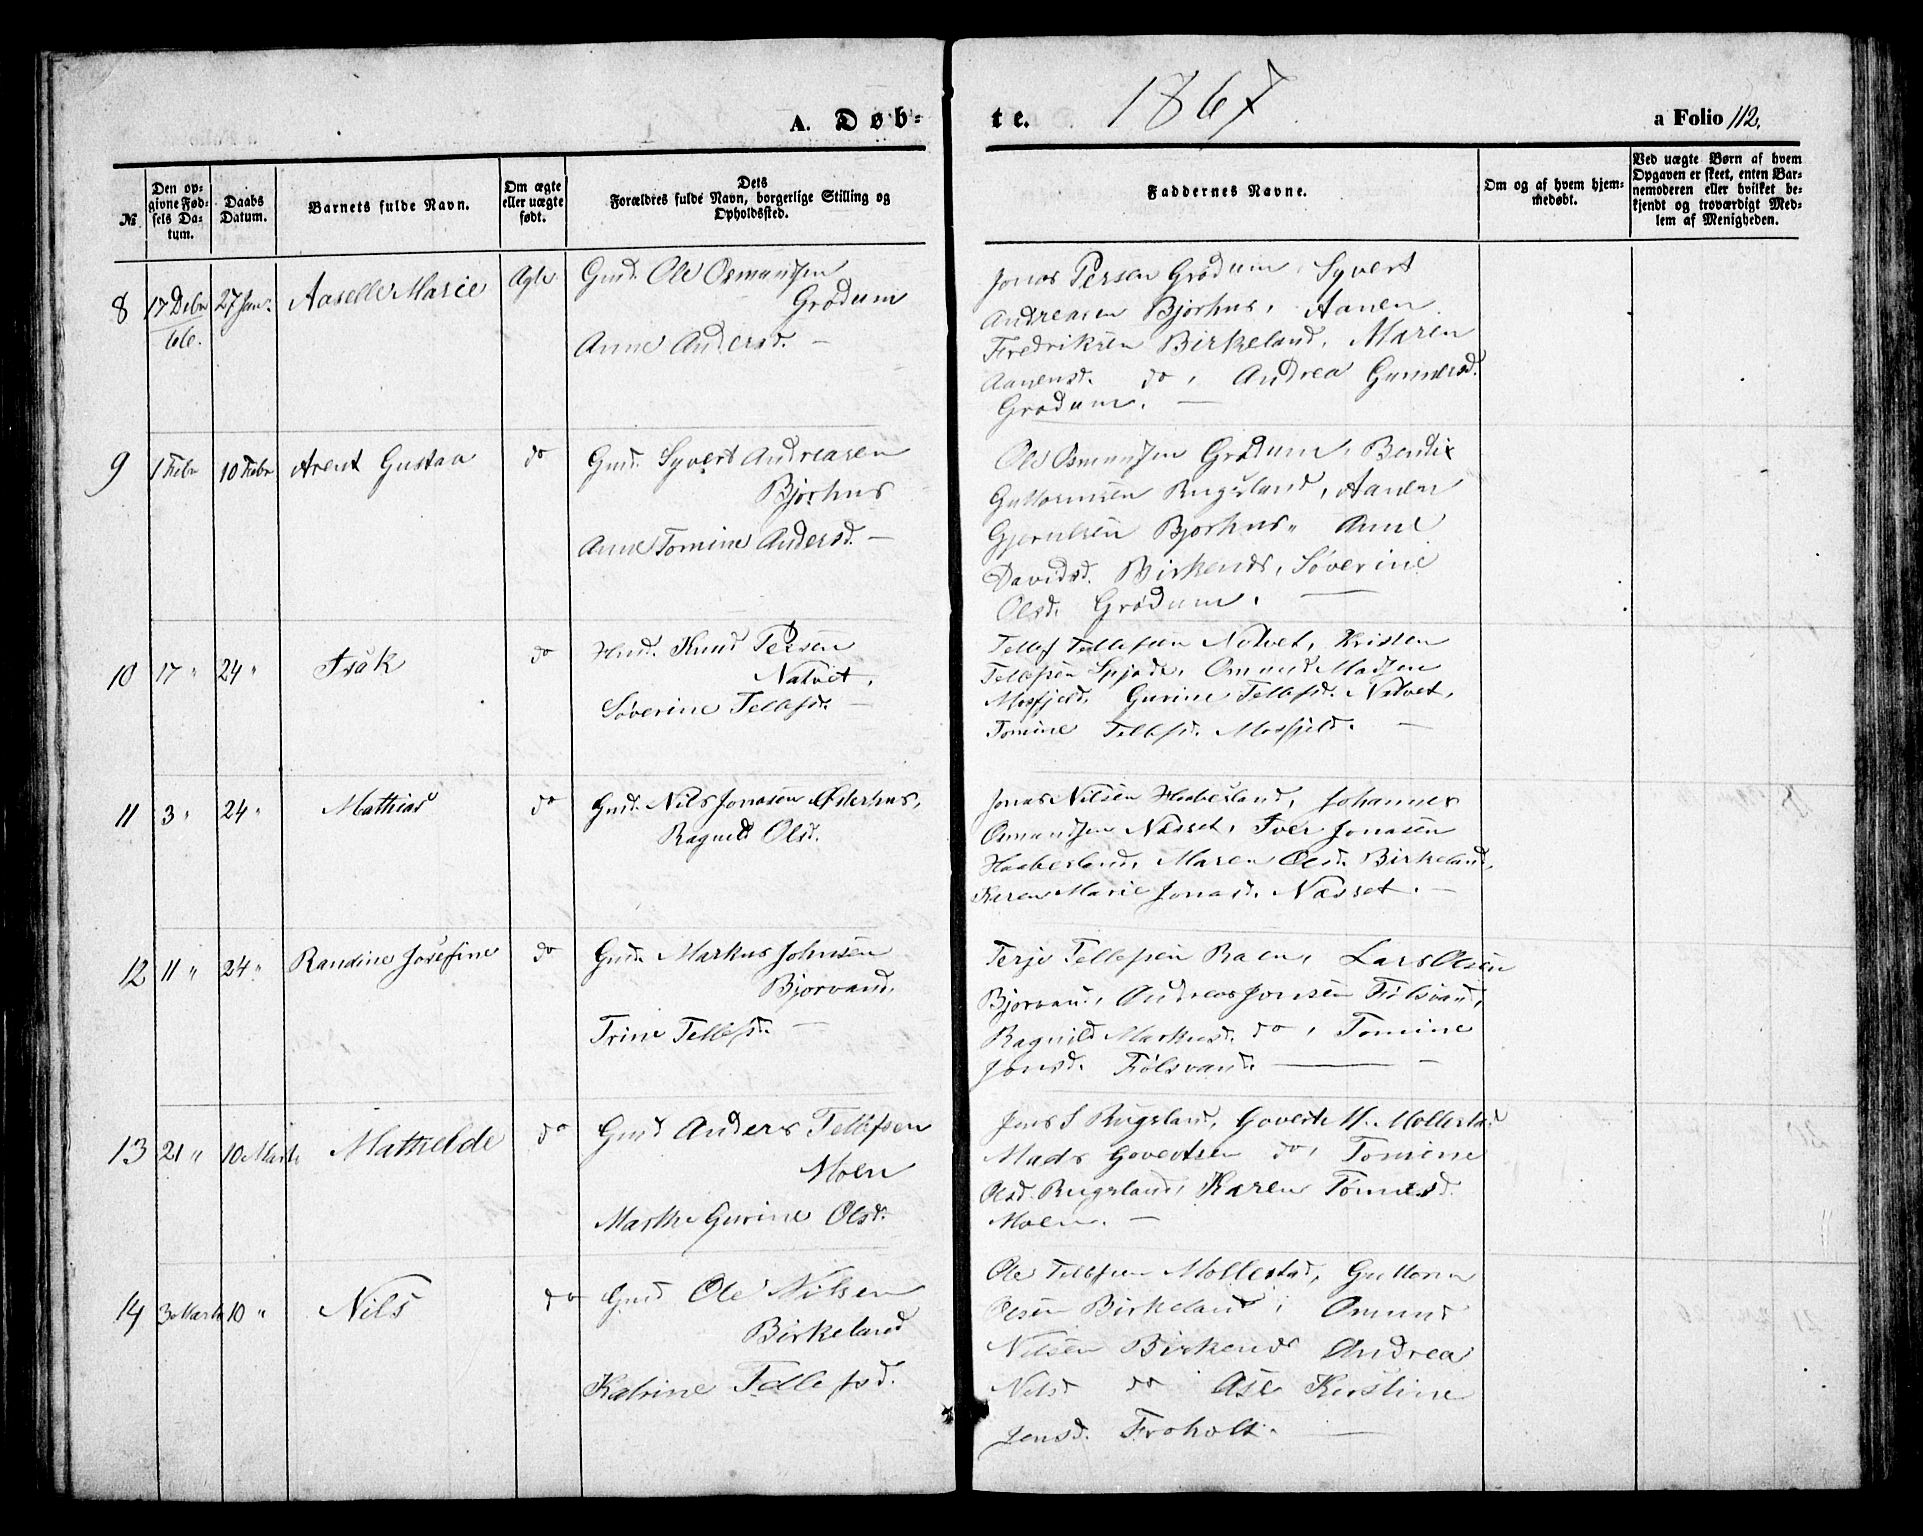 1867
A. Døb-
te.
a Folio 112.
№
Den op-
givne Fød-
sels Da-
tum.
Daabs
Datum.
Barnets fulde Navn.
Om ægte
eller uægte
født.
Dets
Forældres fulde Navn, borgerlige Stilling og
Opholdssted.
Faddernes Navne.
Om og af hvem hjem-
medøbt.
Ved uægte Børn af hvem
Opgaven er skeet, enten Bar-
nemoderen eller hvilket be-
kjendt og troværdigt Med-
lem af Menigheden.
8 17 Debr 66. 27 Jan. Aaselle Marie Ægte
Gmd. Ole Osmundsen
Grødum
Anne Andersd. —
Jonas Persen Grødum, Syvert
Andreasen Bjorhus, Aanen
Fredriksen Birkeland, Maren
Aanensd. do, Andrea Gunnersd.
Grødum. —
9 1 Febr 10 Febr Arent Gustav do
Gmd. Syvert Andreasen
Bjorhus
Anne Tomine Andersd. —
Ole Osmundsen Grødum, Bendix
Guttormsen Rugsland, Aanen
Gjerulsen Bjorhus, Anne
Davidsd. Birkends, Søverine
Olsd. Grødum. —
10 17 " 24 " Isak do
Hmd. Knud Persen
Natvet,
Søverine Tellefsd. —
Tellef Tellefsen Natvet, Kristen
Tellefsen, Omund Madsen
Mosfjeld, Gurine Tellefsd. Natvet,
Tomine Tellefsd. Mosfjeld. —
11 3 " 24 " Mathias do
Gmd. Nils Jonasen Østerhus,
Ragnild Olsd.
Jonas Nilsen Haaberland, Johannes
Osmundsen Næsset, Iver Jonasen
Haaberland, Maren Olsd. Birkeland,
Karen Marie Jonasd. Næsset. —
12 11 " 24 " Randine Josefine do
Gmd. Markus Johnsen
Bjorvand,
Trine Tellefsd. —
Terje Tellefsen Raen, Lars Olsen
Bjorvand, Andreas Jonsen Fiølsvand,
Ragnild Markusd. do, Tomine
Jonsd. Fiølsvand. —
13 21 " 10 Marts Mathilde do
Gmd Anders Tellefsen
Moen
Marthe Gurine Olsd.
Jens S Rugsland, Govert M. Mollestad
Mads Govertsen do, Tomine
Olsd. Rugsland, Karen Tønnesd.
Moen. —
14 3 Marts 10 " Nils do
Gmd Ole Nilsen
Birkeland
Katrine Tellefsd.
Ole Tellefsen Mollestad, Guttorm
Olsen Birkeland, Omund
Nilsen Birkends Andrea
Nilsd do Åse Kirstine
Jensd. Froholt. —